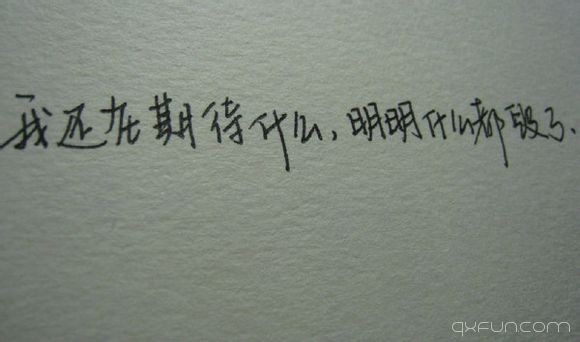 我还在期待什么,明明什么都毁了.
qxfuncom